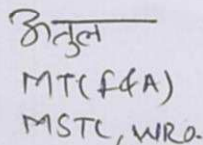 अतुल
MT(F&A)
MSTC, WRO.